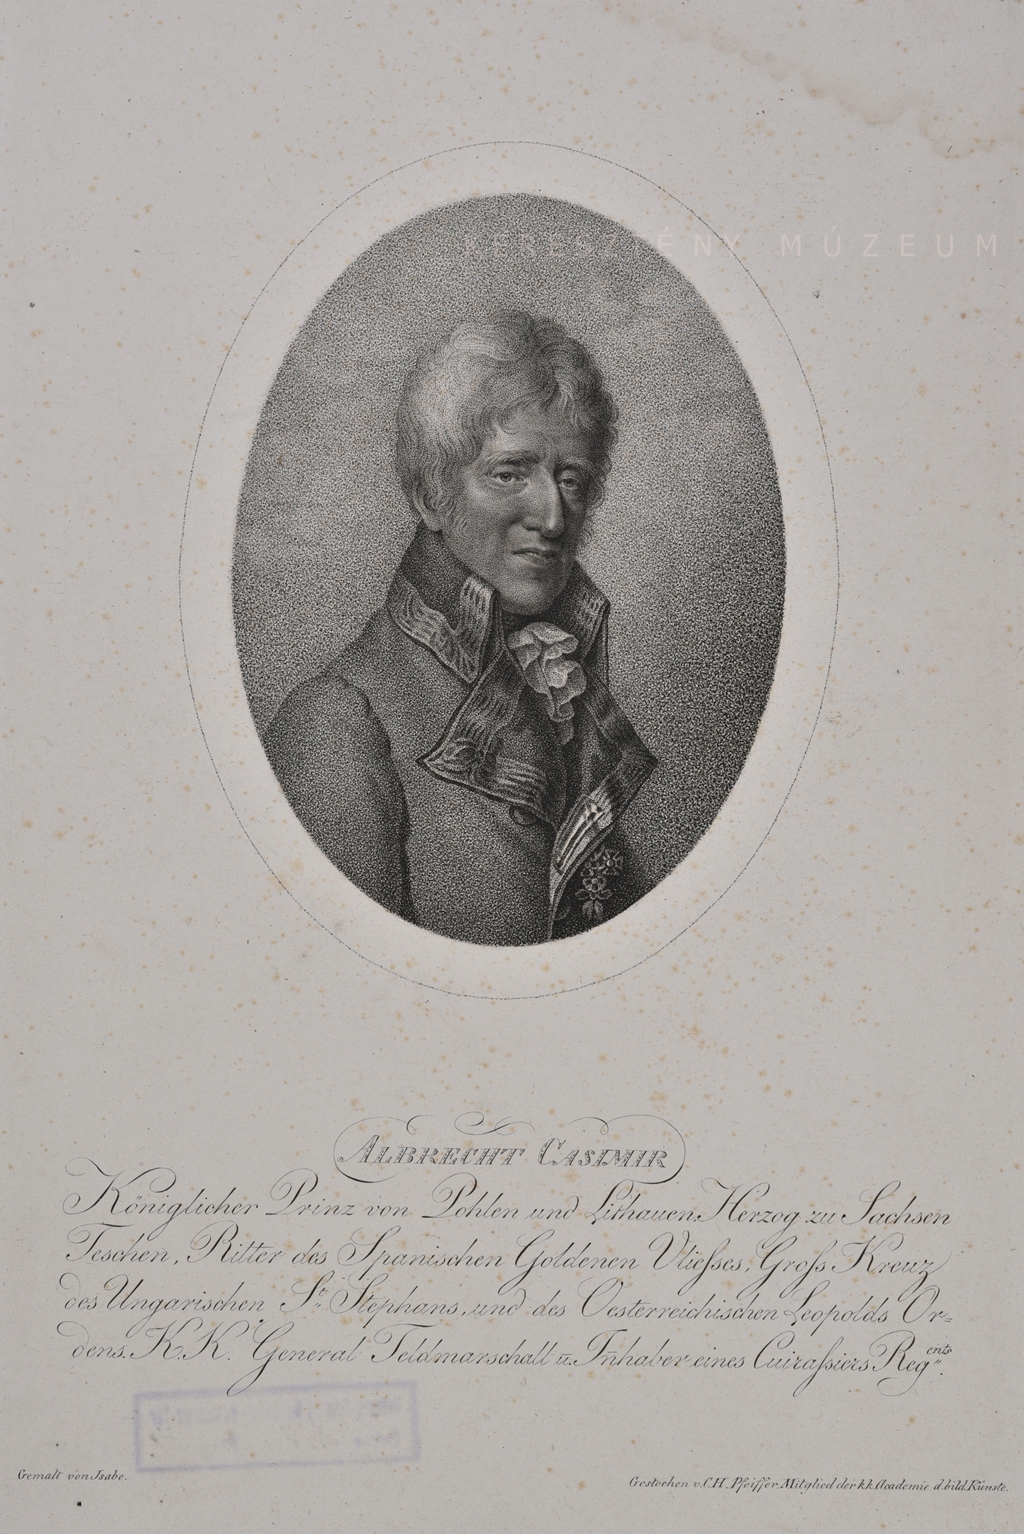 KERESZTÉNY MÚZEUM
ALBRECHT CASIMIR
Königlicher Prinz von Pohlen und Lithauen, Herzog zu Sachsen
Teschen, Ritter des Spanischen Goldenen Vließes, Groß Kreuz
des Ungarischen St. Stephans, und des Oesterreichischen Leopolds Or=
dens. K. K. General Feldmarschall u. Inhaber eines Cuiraßiers Regents.
Gemalt von Isabe.
Gestochen v. C. H. Pfeiffer Mitglied der kk. Academie d. bild. Künste.